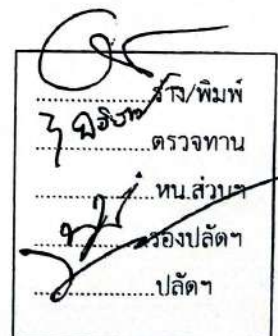 ................ร่าง/พิมพ์
................ตรวจทาน
................หน.ส่วนฯ
................รองปลัดฯ
................ปลัดฯ